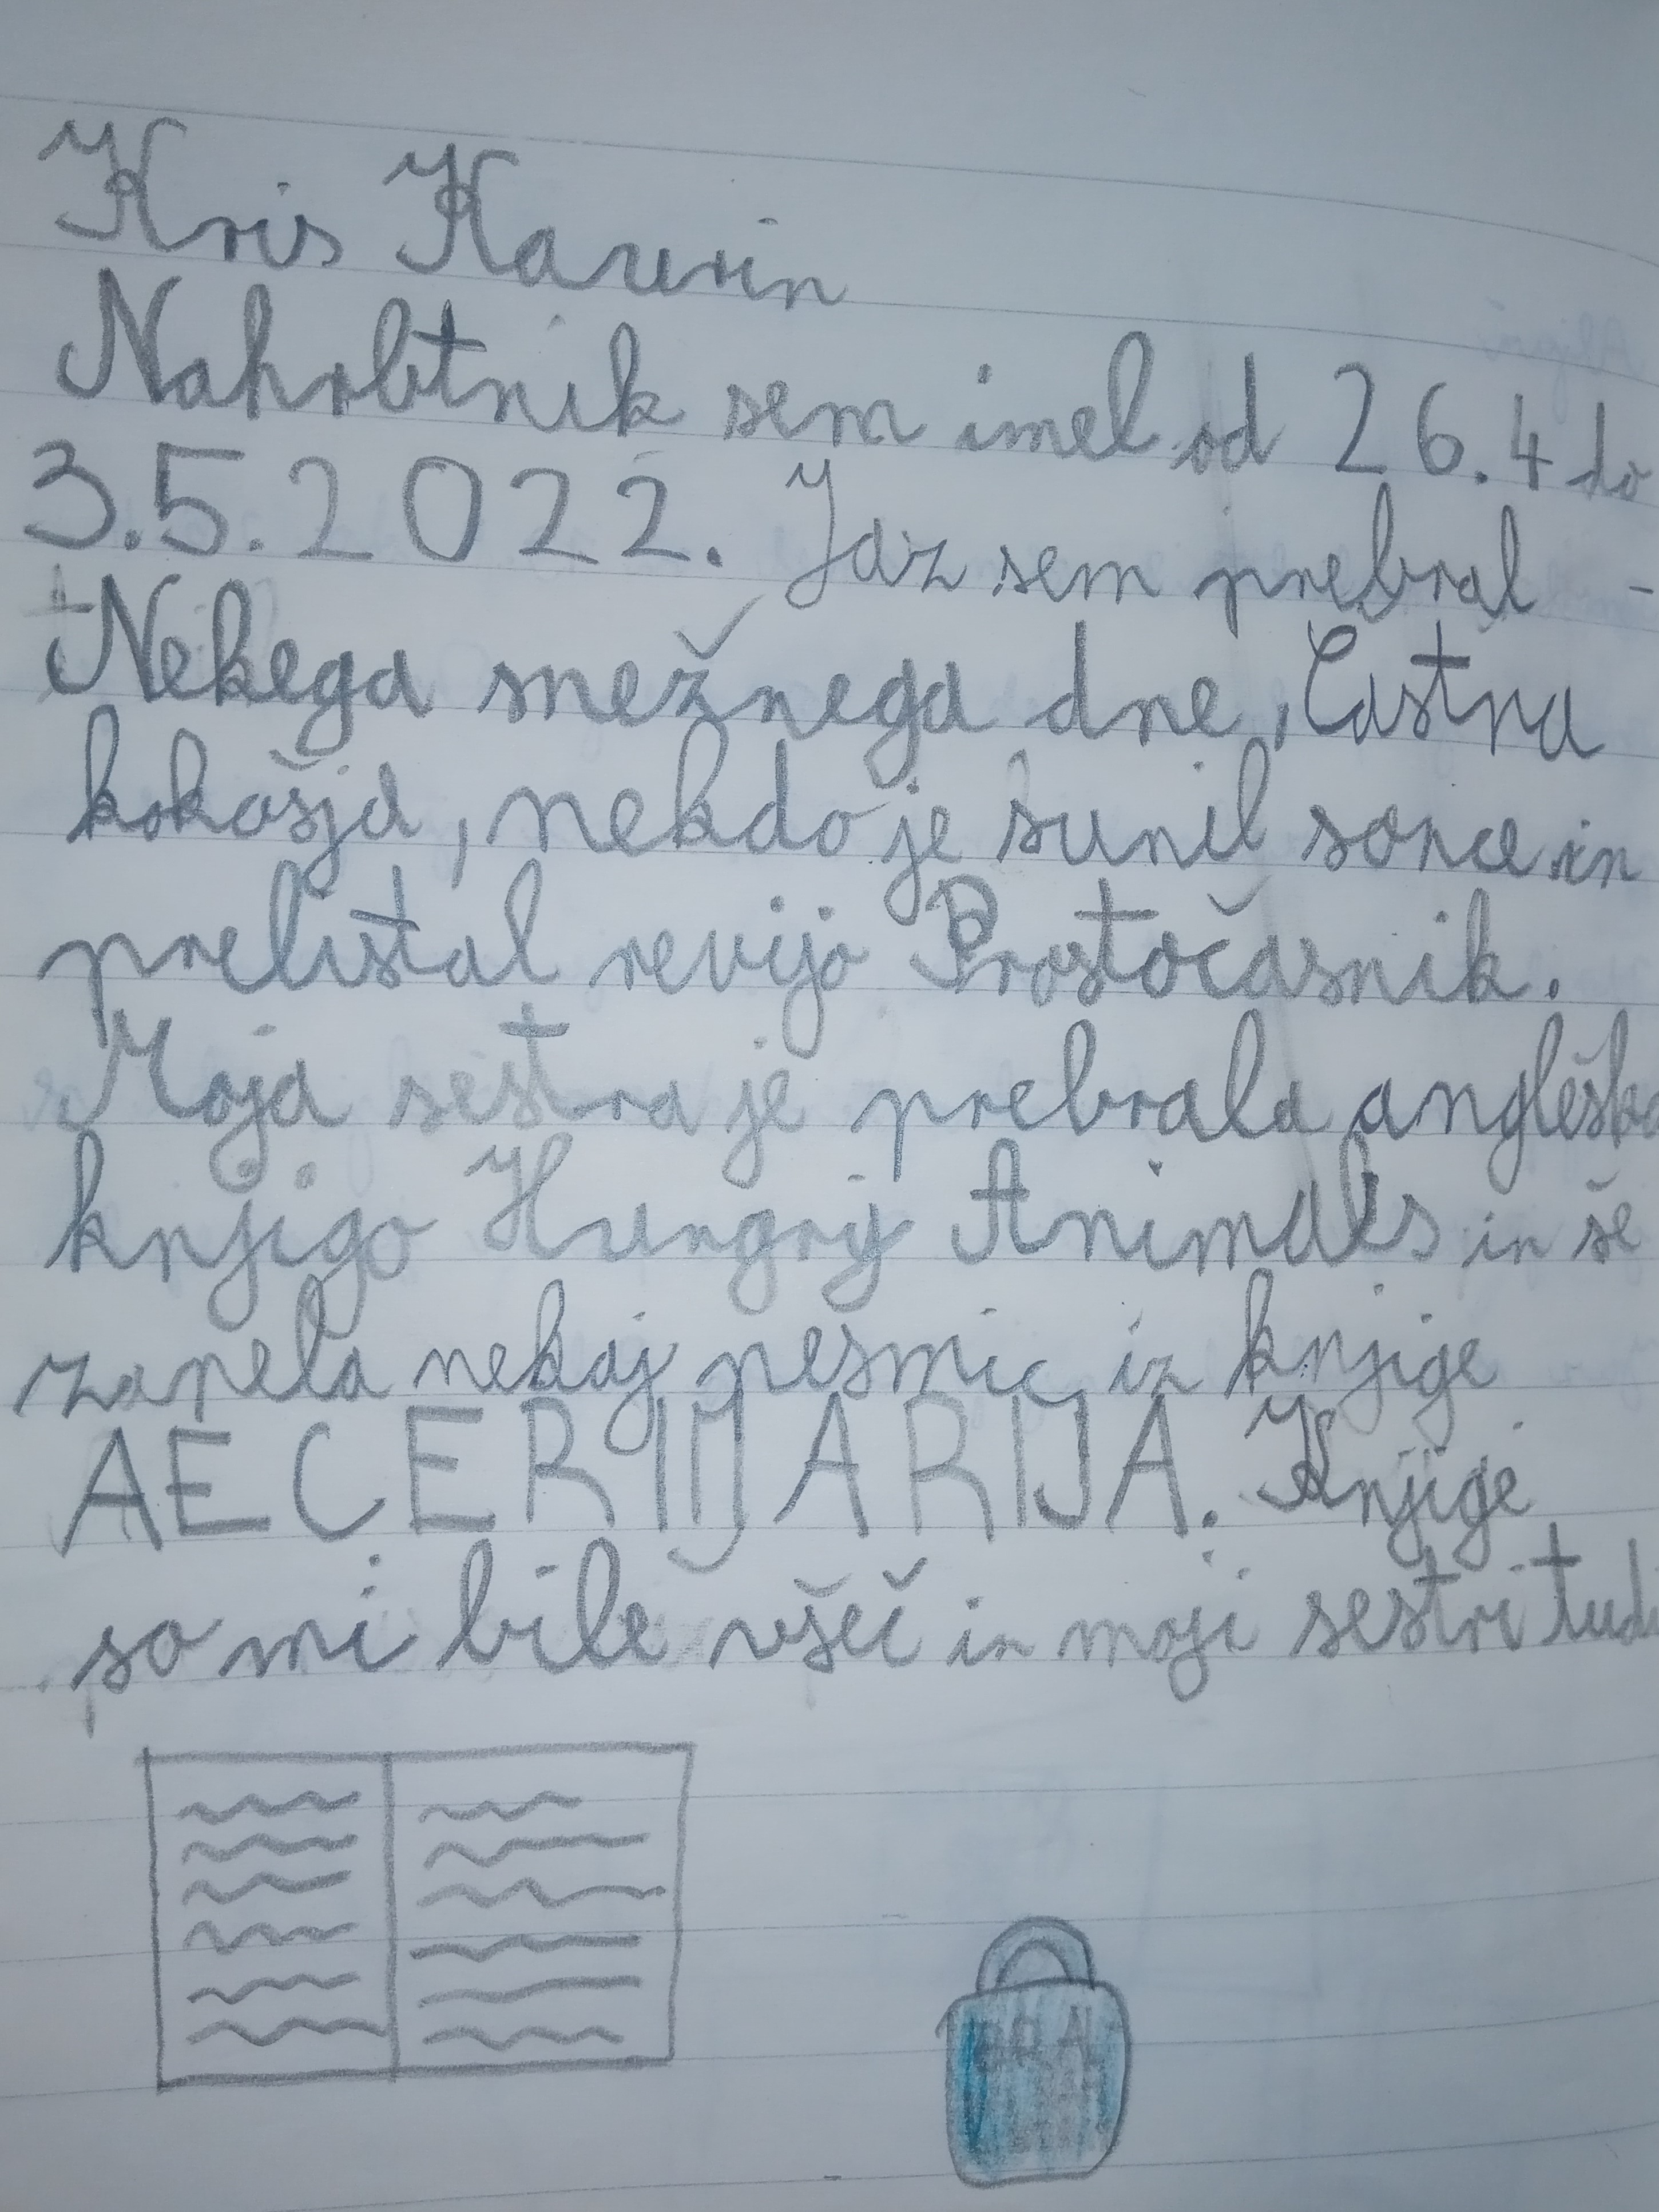 Kris Kavrin
Nahrbtnik sem imel od 26.4 do
3.5.2022. Jaz sem prebral -
Nekega snežnega dne, Častna
kokošja, nekdo je sunil sonce in
prelistal revijo Prostočasnik.
Moja sestra je prebrala angleško
knjigo Hungry Animals in še
zapela nekaj pesmic iz knjige
AECERIMARIJA. Knjige
so mi bile všeč in moji sestri tudi